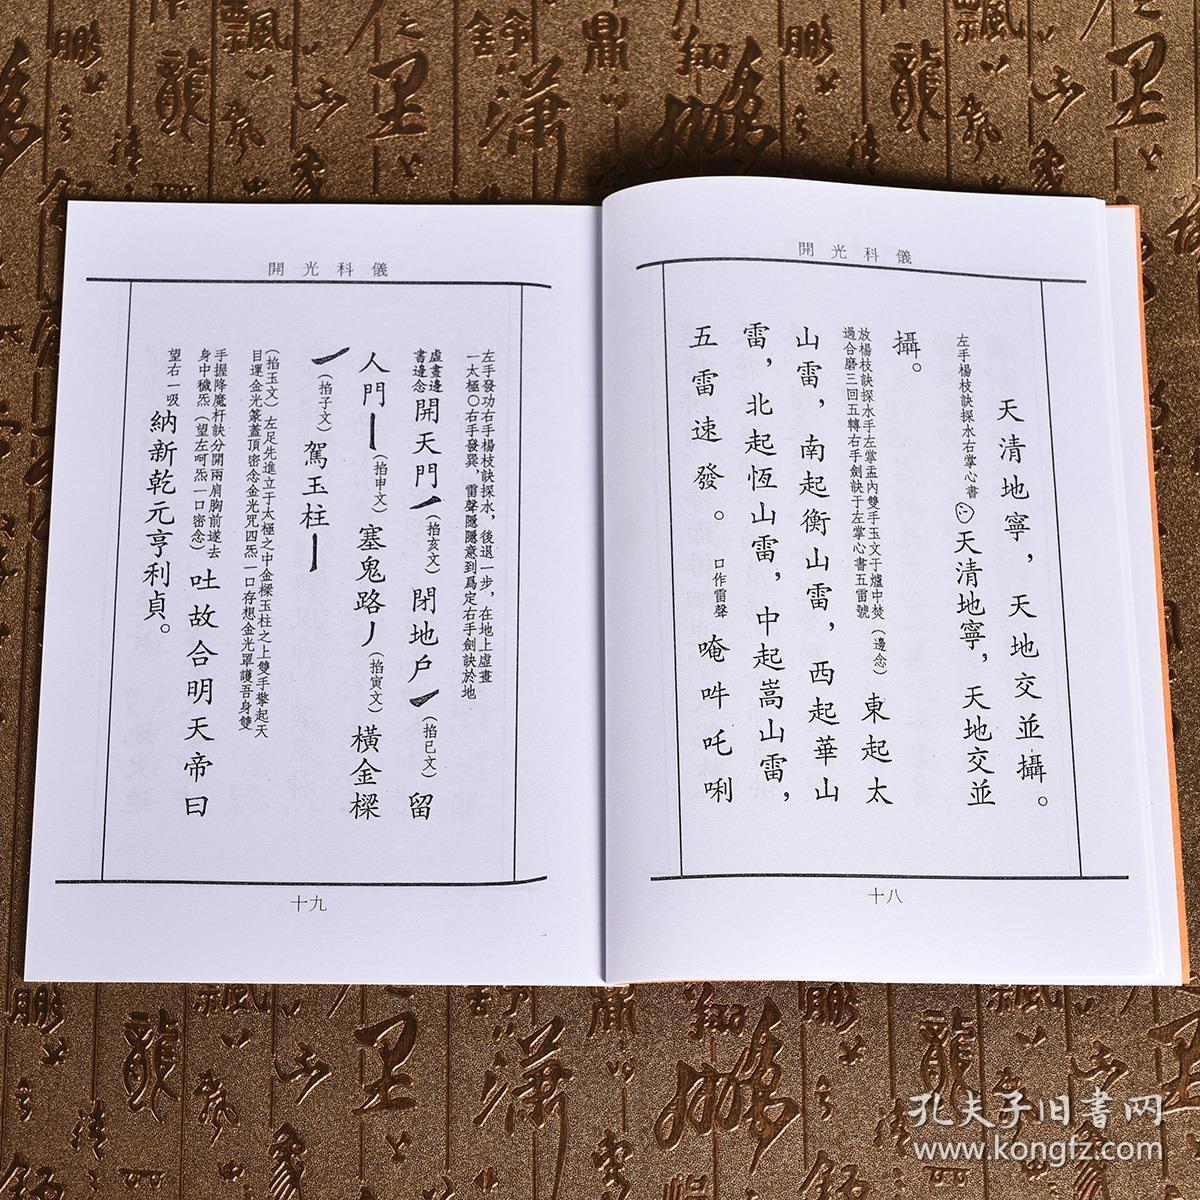 開光科儀
天清地寧，天地交並攝。
左手楊枝訣探水右掌心書
天清地寧，天地交並
攝。
放楊枝訣探水手左掌盂內雙手玉文于爐中焚
過合磨三回五轉右手劍訣于左掌心書五雷號
（邊念）東起太
山雷，南起衡山雷，西起華山
雷，北起恆山雷，中起嵩山雷，
五雷速發。口作雷聲 唵吽吒唎
十八
開光科儀
左手發功右手楊枝訣探水，後退一步，在地上虛畫
一太極○右手發巽，雷聲隱隱意到爲定右手劍訣於地
虛畫邊
書邊念
開天門（掐亥文）閉地戶（掐巳文）留
人門（掐申文）塞鬼路（掐寅文）橫金樑
（掐子文）駕玉柱
（掐玉文）左足先進立于太極之中金樑玉柱之上雙手擎起天
目運金光篆蓋頂密念金光咒四炁一口存想金光罩護吾身雙
手握降魔杵訣分開兩肩胸前遂去
身中穢炁（望左呵炁一口密念）
吐故合明天帝曰
望右一吸 納新乾元亨利貞。
十九
孔夫子旧書网
www.kongfz.com